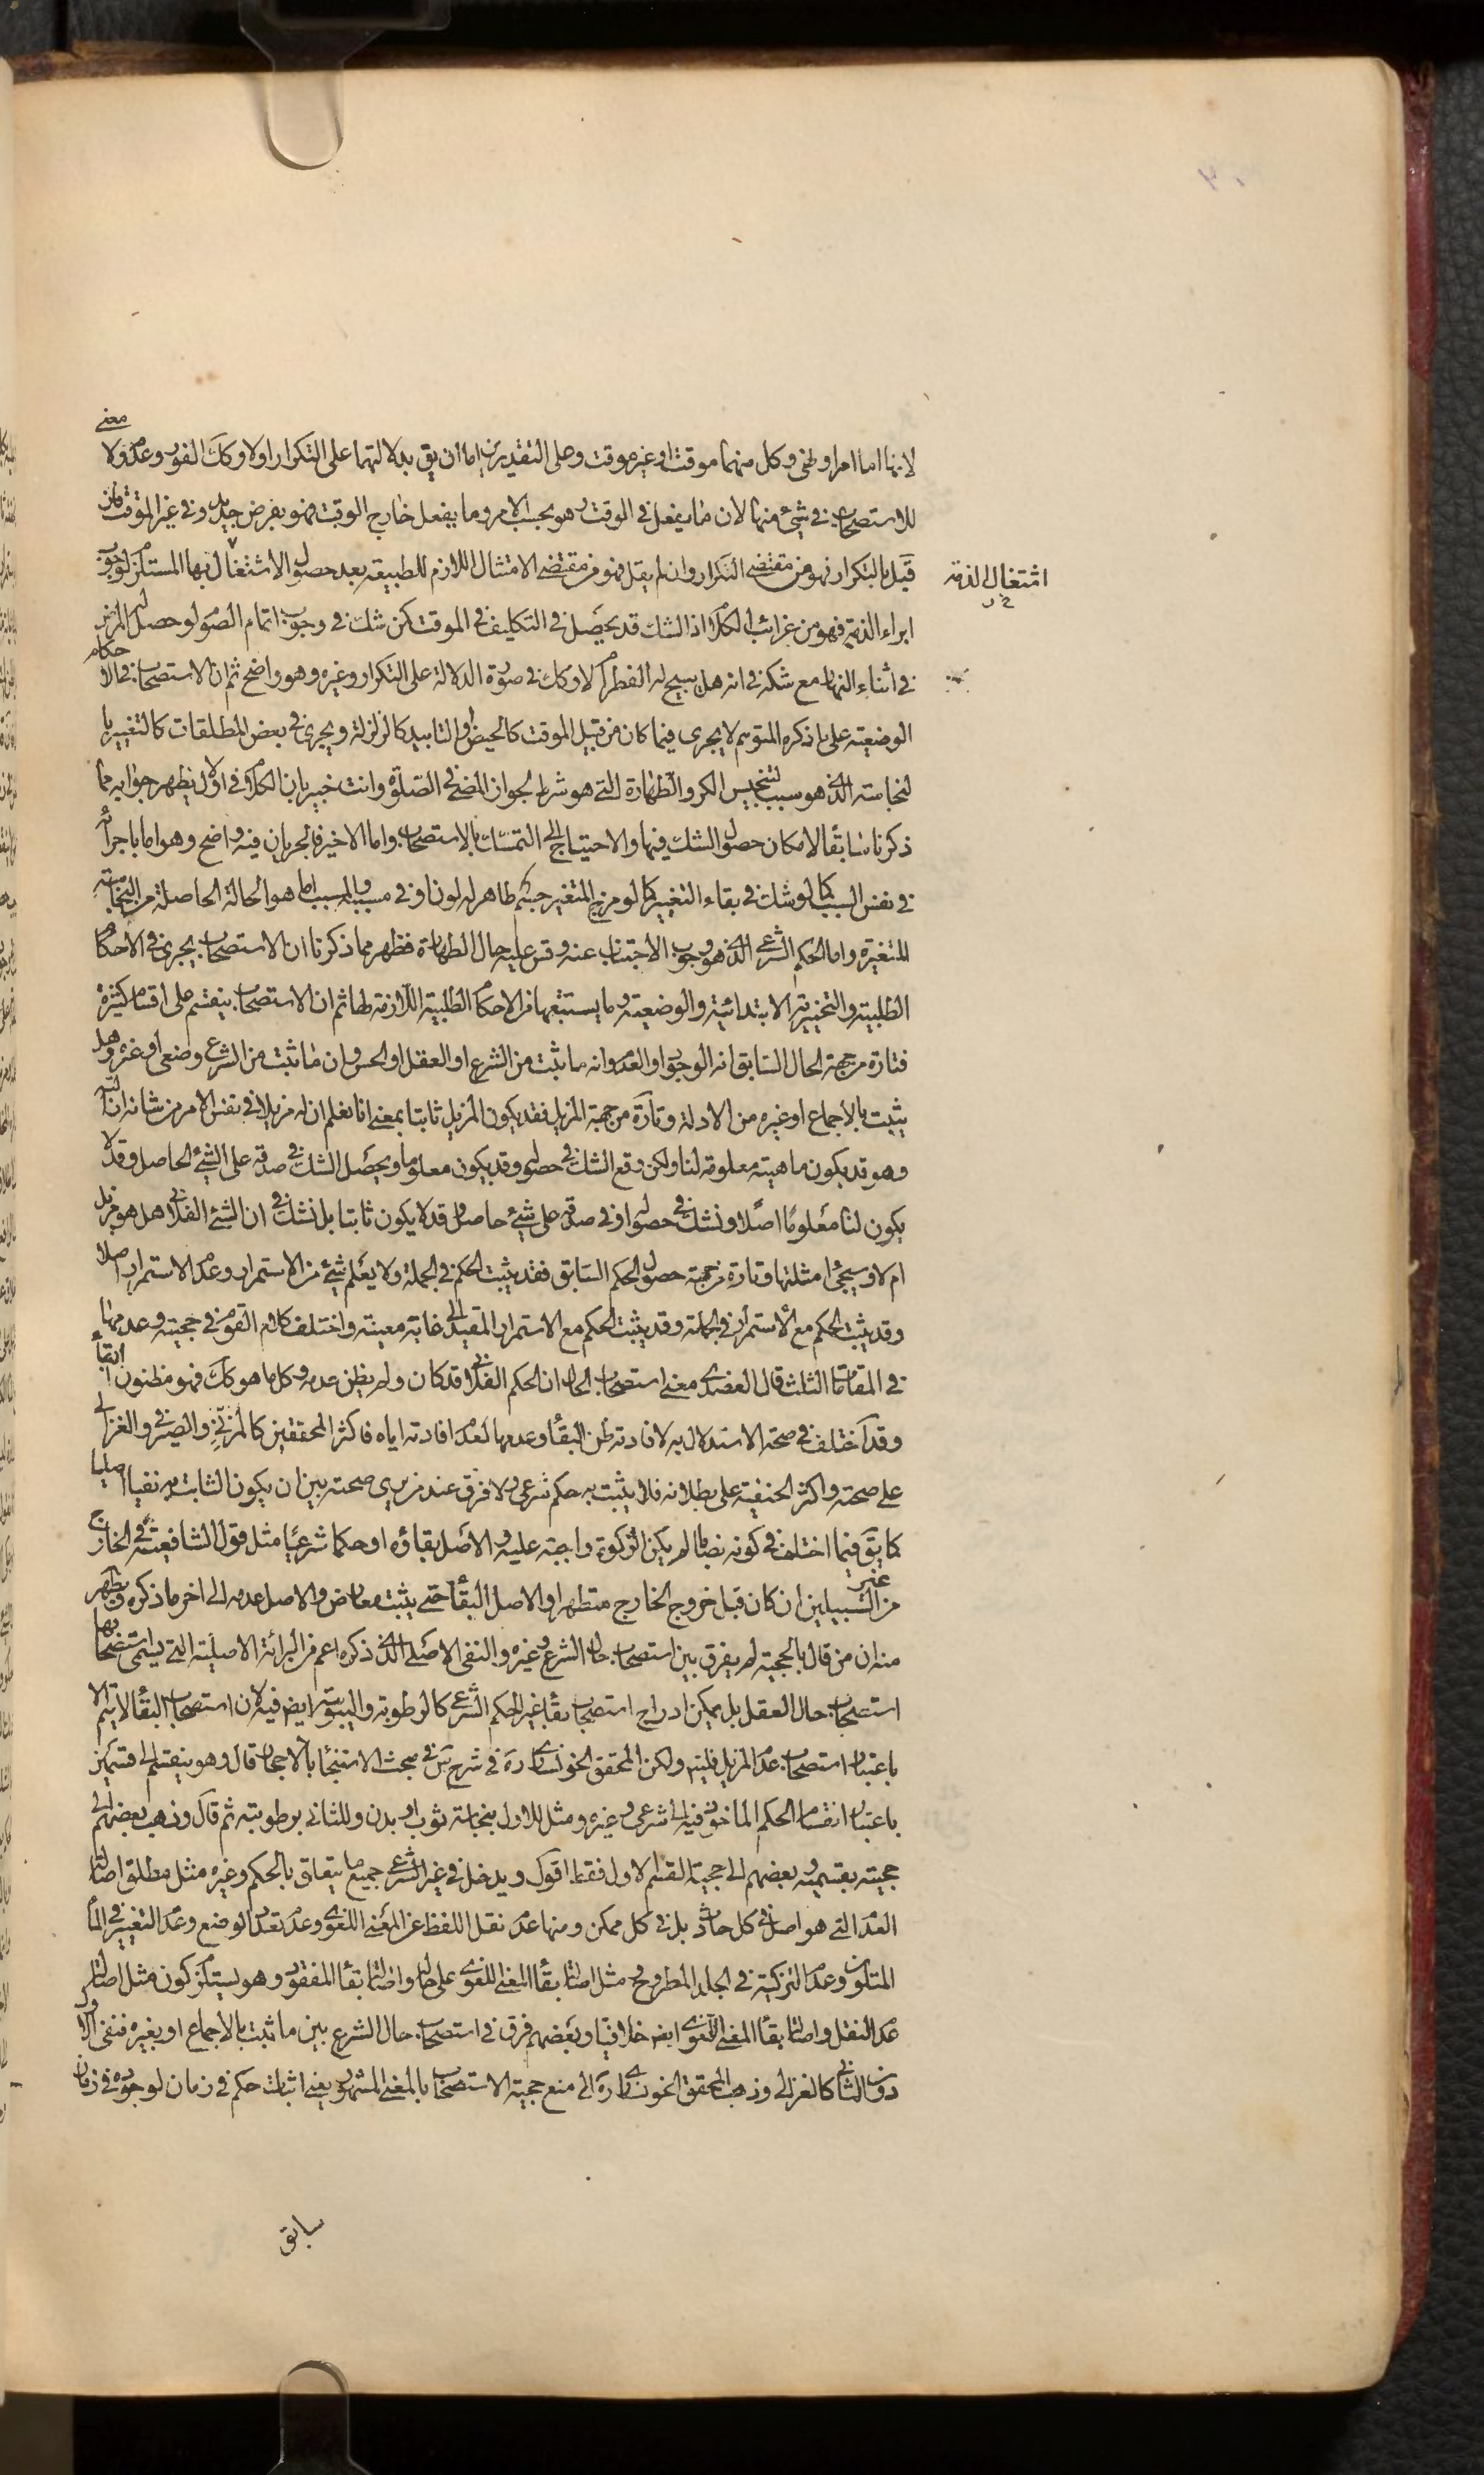 لانها اما امر او نهى وكل منهما موقت او غير موقت وعلى التقديرين اما ان يق بدلالتهما على التكرار اولا وكك الفور وعدمه ولا معنى
للاستصحاب فى شئ منها لان ما يفعل فى الوقت هو بحسب الامر وما يفعل خارج الوقت فهو بفرض جديد وفى غير الموقت فان
قيل بالتكرار فهو من مقتضى التكرار وان لم يقل فهو من مقتضى الامتثال اللازم للطبيعة بعد حصول الاشتغال بها المستلزم لوجوب
اشتغال الذمة
ابراء الذمة فهو من غرائب الكلام اذ الشك قد يحصل فى التكليف فى الموقت كمن شك فى وجوب اتمام الصوم لو حصل له المرض
فى اثناء النهار مع شكه فى انه هل يبيح له الفطر ام لا وكك فى صورة الدلالة على التكرار وغيره وهو واضح ثم ان الاستصحاب فى الاحكام
الوضعية على ما ذكره المتوهم لا يجرى فيما كان من قبيل الموقت كالحيض او التابيد كالزلزلة ويجرى فى بعض المطلقات كالتغيير با
لنجاسة الذى هو سبب لتنجيس الكر والطهارة التى هو شرط لجواز المضى فى الصلوة وانت خبير بان الكلام فى الاول يظهر جوابه مما
ذكرنا سابقا لامكان حصول الشك فيها والاحتياج الى التمسك بالاستصحاب واما الاخير فالجريان فيه واضح وهو اما باجرائه
فى نفس السبب كما لو شك فى بقاء التغيير كما لو مزج المتغير بجسم طاهر له لون او فى مسببه والمسبب اما هو الحالة الحاصلة من النجاسة
المتغيرة واما الحكم الشرعى الذى هو وجوب الاجتناب عنه وقس عليه حال الطهارة فظهر مما ذكرنا ان الاستصحاب يجرى فى الاحكام
الطلبية والتخييرية الابتدائية والوضعية وما يستتبعها من الاحكام الطلبية اللازمة لها ثم ان الاستصحاب ينقسم على اقسام كثيرة
فتارة من جهة الحال السابق انه الوجود او العدم وانه مما ثبت من الشرع او العقل او الحس وان ما ثبت من الشرع وضعى او غيره وهل
يثبت بالاجماع او غيره من الادلة وتارة من جهة المزيل فقد يكون المزيل ثابتا بمعنى انا نعلم ان له مزيلا فى نفس الامر من شانه ازالته
وهو قد يكون ماهيته معلومة لنا ولكن وقع الشك فى حصوله وقد يكون معلوما ويحصل الشك فى صدقه على الشئ الحاصل وقد لا
يكون لنا معلوما اصلا ونشك فى حصوله او فى صدقه على شئ حاصل وقد لا يكون ثابتا بل نشك فى ان الشئ الفلانى هل هو مزيل
ام لا وسيجئ امثلتها وتارة من جهة حصول الحكم السابق فقد يثبت الحكم فى الجملة ولا يعلم شئ من الاستمرار وعدم الاستمرار اصلا
وقد يثبت الحكم مع الاستمرار فى الجملة وقد يثبت الحكم مع الاستمرار المقيد الى غاية معينة واختلف كلام القوم فى حجيته وعدمها
فى المقامات الثلث قال العضدى معنى استصحاب الحال ان الحكم الفلانى قد كان ولم يظن عدمه وكل ما هو كك فهو مظنون البقاء
وقد اختلف فى صحة الاستدلال به لافادته ظن البقاء وعدمها لعدم افادته اياه فاكثر المحققين كالمزنى والصيرفى والغزالى
على صحته واكثر الحنفية على بطلانه فلا يثبت به حكم شرعى ولا فرق عند من يرى صحته بين ان يكون الثابت به نفيا اصليا
كما يق فيما اختلف فى كونه نصابا لم يكن الزكوة واجبة عليه والاصل بقاؤه او حكما شرعيا مثل قول الشافعية فى الخارج
من غير السبيلين ان كان قبل خروج الخارج متطهرا والاصل البقاء حتى يثبت معارض والاصل عدمه الى اخر ما ذكره ويظهر
منه ان من قال بالحجية لم يفرق بين استصحاب حال الشرع وغيره والنفى الاصلى الذى ذكره اعم من البرائة الاصلية التى يسمى استصحابها
استصحاب حال العقل بل يمكن ادراج استصحاب بقاء غير الحكم الشرعى كالرطوبة واليبوسة ايض فيه لان استصحاب البقاء لا يتم الا
باعتبار استصحاب عدم المزيل فليتم ولكن المحقق الخونسارى ره فى شرح س فى مبحث الاستنجاء بالاحجار قال وهو ينقسم الى قسمين
باعتبار انقسام الحكم الماخوذ فيه الى شرعى وغيره ومثل للاول بنجاسة ثوب او بدن وللثانى برطوبته ثم قال وذهب بعضهم الى
حجيته بقسميه وبعضهم الى حجية القسم الاول فقط اقول ويدخل فى غير الشرعى جميع ما يتعلق بالحكم وغيره مثل مطلق اصالة
العدم التى هو اصل فى كل حادث بل فى كل ممكن ومنها عدم نقل اللفظ عن المعنى اللغوى وعدم تعدد الوضع وعدم التغيير فى الماء
المتلون وعدم التزكية فى الجلد المطروح ومثل اصالة بقاء المعنى اللغوى على حاله واصالة بقاء المفقود وهو يستلزم كون مثل اصالة
عدم النقل واصالة بقاء المعنى اللغوى ايض خلافيا وبعضهم فرق فى استصحاب حال الشرع بين ما ثبت بالاجماع او بغيره فنفى الاول
دون الثانى كالغزالى وذهب المحقق الخونسارى ره الى منع حجية الاستصحاب بالمعنى المشهور يعنى اثبات حكم فى زمان لوجوده فى زمان
سابق